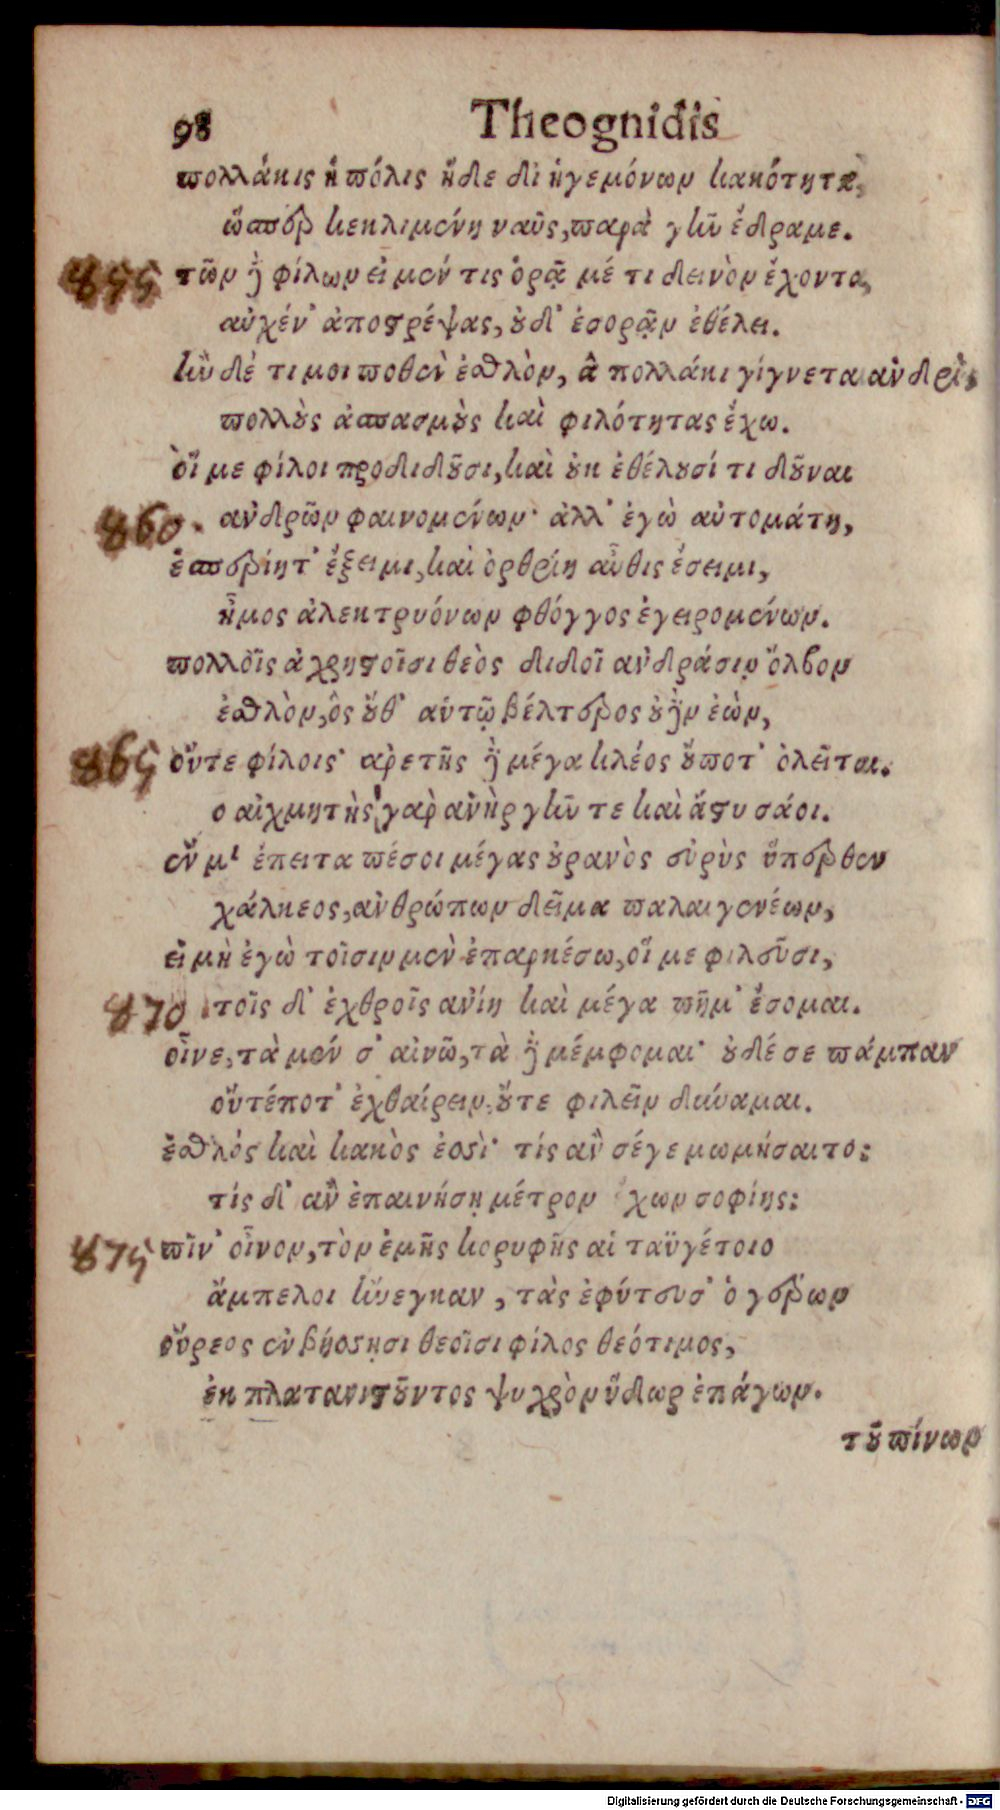 98 Theognidis
πολλάκις ἡ πόλις ἥδε δι' ἡγεμόνων κακότητα,
ὥσπερ κεκλιμένη ναῦς, παρὰ γῆν ἔδραμε.
855 τῶν δὲ φίλων εἰ μέν τις ὁρᾷ μέ τι δεινὸν ἔχοντα,
αὐχέν' ἀποστρέψας, οὐδ' ἐσορᾷν ἐθέλει.
ἢν δέ τι μοι ποθὲν ἐσθλὸν, ἃ πολλάκι γίγνεται ἀνδρὶ,
πολλοὺς ἀσπασμοὺς καὶ φιλότητας ἔχω.
οἵ με φίλοι προδιδοῦσι, καὶ οὐκ ἐθέλουσί τι δοῦναι
860. ἀνδρῶν φαινομένων· ἀλλ' ἐγὼ αὐτομάτη,
ἑσπερίητ' ἔξειμι, καὶ ὀρθρίη αὖθις ἔσειμι,
ἦμος ἀλεκτρυόνων φθόγγος ἐγειρομένων.
πολλοῖς ἀχρηστοῖσι θεὸς διδοῖ ἀνδράσιν ὄλβον
ἐσθλὸν, ὃς οὔθ' αὑτῷ βέλτερος οὐδὲν ἐὼν,
865 οὔτε φίλοις· ἀρετῆς δὲ μέγα κλέος οὔποτ' ὀλεῖται.
ο αἰχμητὴς γὰρ ἀνὴρ γῆν τε καὶ ἄστυ σάοι.
ἔν μοι ἐπειτα πέσοι μέγας οὐρανὸς εὐρὺς ὕπερθεν
χάλκεος, ἀνθρώπων δεῖμα παλαιγενέων,
εἰ μὴ ἐγὼ τοῖσιν μὲν ἐπαρκέσω, οἵ με φιλεῦσι,
870 τοῖς δ' ἐχθροῖς ἀνίη καὶ μέγα πῆμ' ἔσομαι.
οἶνε, τὰ μέν σ' αἰνῶ, τὰ δὲ μέμφομαι· οὐδέ σε πάμπαν
οὔτέποτ' ἐχθαίρειν, οὔτε φιλεῖν δύναμαι.
ἐσθλὸς καὶ κακὸς ἐσσὶ· τίς ἂν σέγε μωμήσαιτο;
τίς δ' ἂν ἐπαινήσῃ μέτρον χων σοφίης;
875 πῖν' οἶνον, τὸν ἐμῆς κορυφῆς αἱ ταϋγέτοιο
ἄμπελοι ἤνεγκαν, τὰς ἐφύτευσ' ὁ γέρων
οὔρεος ἐν βήσσῃσι θεοῖσι φίλος θεότιμος,
ἐκ πλατανιστοῦντος ψυχρὸν ὕδωρ ἐπάγων.
τοῦ πίνων
Digitalisierung gefördert durch die Deutsche Forschungsgemeinschaft - DFG